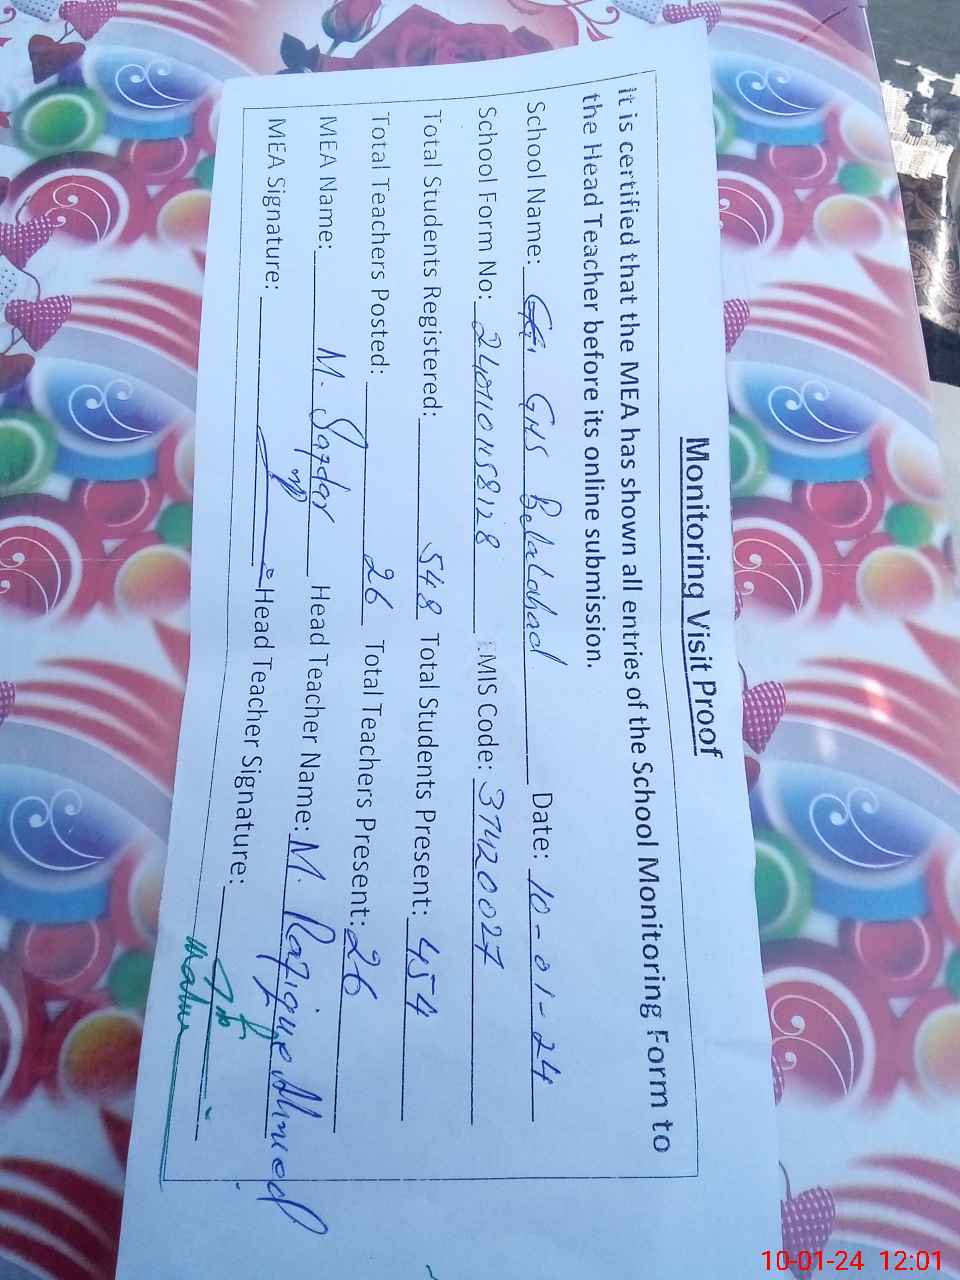 Monitoring Visit Proof
it is certified that the MEA has shown all entries of the School Monitoring Form to
the Head Teacher before its online submission.
School Name: GHS Beladahad Date: 10-01-24
School Form No: 240110458128 EMIS Code: 37120027
Total Students Registered: 548 Total Students Present: 454
Total Teachers Posted: 26 Total Teachers Present: 26
MEA Name: M. Safdar Head Teacher Name: M. Rafique Ahmed
MEA Signature: Head Teacher Signature:
10-01-24 12:01